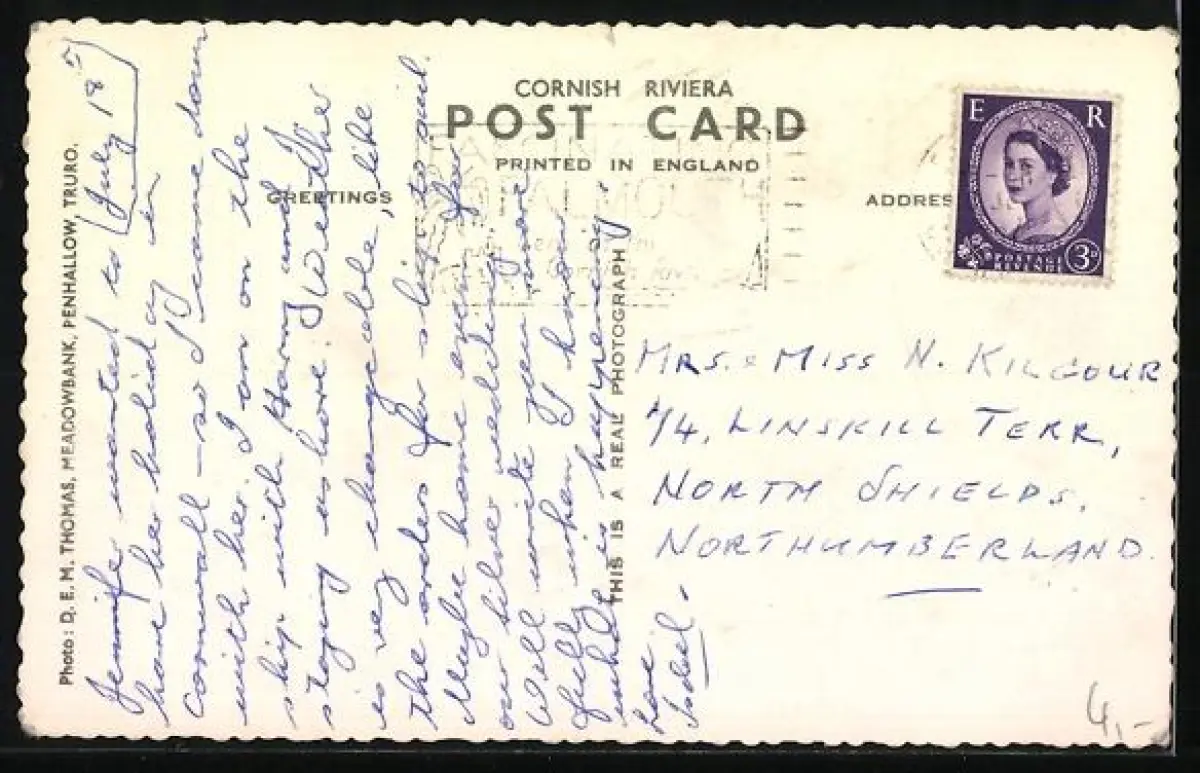 CORNISH RIVIERA
POST CARD
PRINTED IN ENGLAND
GREETINGS
ADDRES
E R
POSTAGE
REVENUE
3D
Photo: D. E. M. THOMAS, MEADOWBANK, PENHALLOW, TRURO.
THIS IS A REAL PHOTOGRAPH
July 18
Jennifer wanted to
have her holiday in
Cornwall – so I came down
with her. I am on the
ship with Harry and I
stay on here. Weather
is very changeable, like
the orders for ship to sail.
Maybe home even for
our silver wedding
Will write you more
fully when I know
what is happening
Love
Isobel.
MRS. & MISS N. KILGOUR
74, LINSKILL TERR,
NORTH SHIELDS,
NORTHUMBERLAND.
4,-